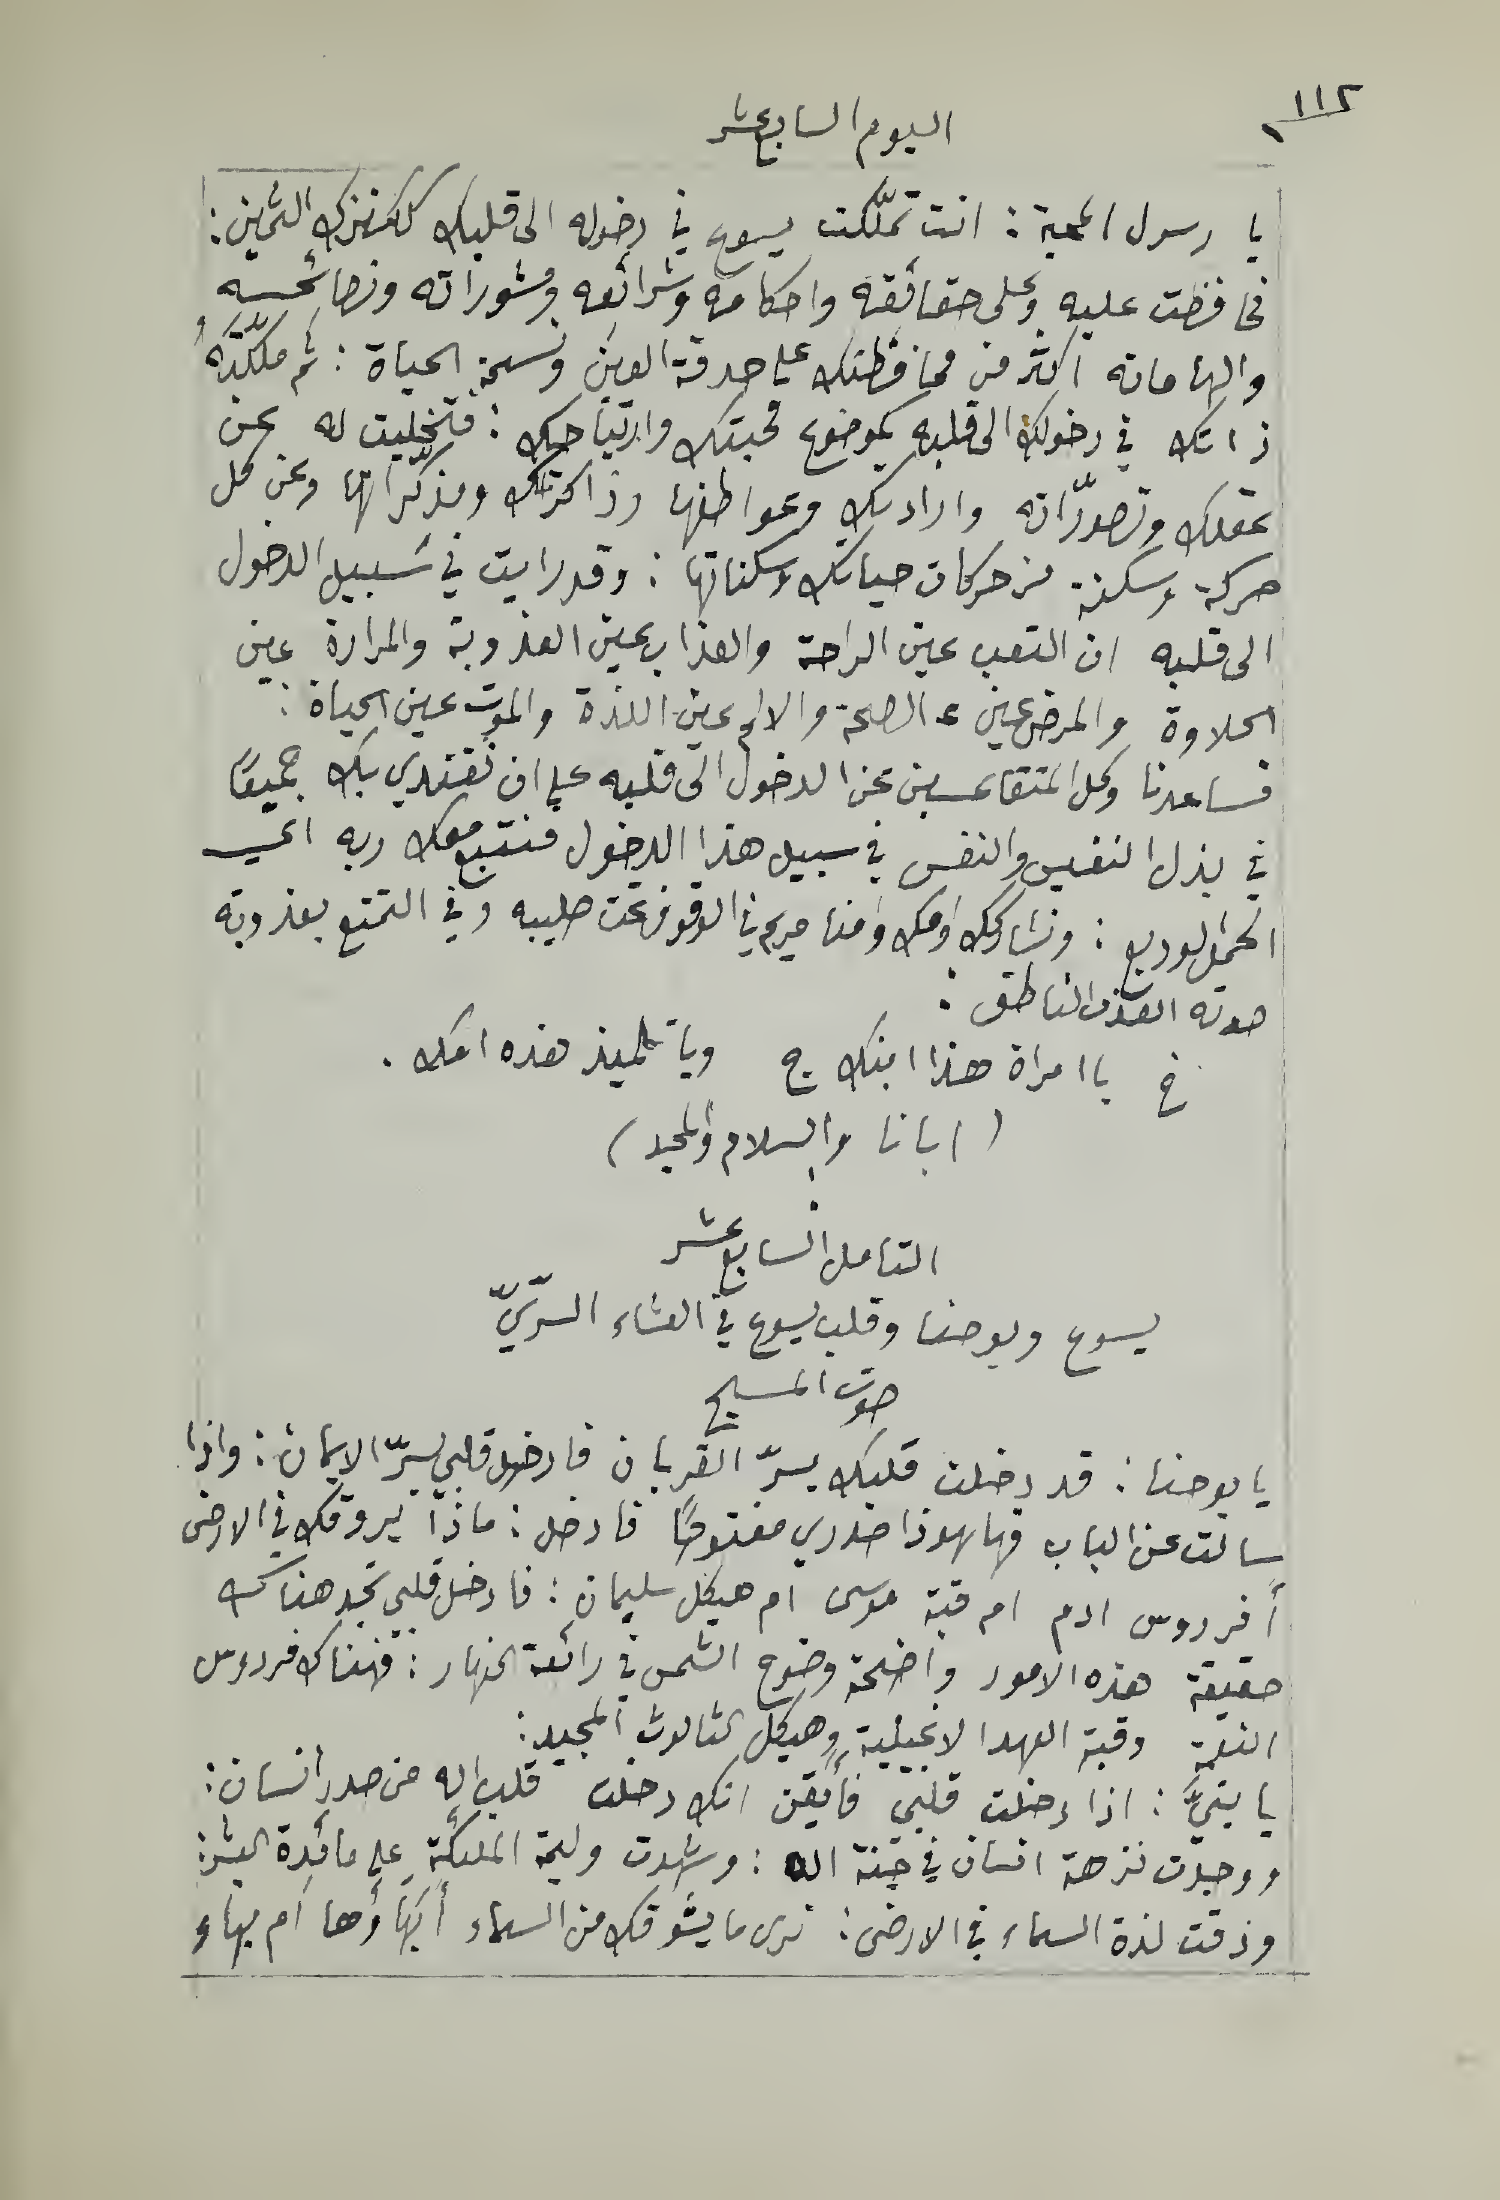 ١١٢
اليوم السابع عشر
يا رسول المحبة : انت تملّكت يسوع في دخوله الى قلبك ككنزك الثمين :
فحافظت عليه وعلى حقائقه واحكامه وشرائعه ومشوراته ونصائحه
والهاماته اكثر من محافظتك على حدقة العين ونسمة الحياة : ثم ملّكتَهُ
ذاتك في دخولك الى قلبه كموضوع محبتك وارتياحك : فتخليت له عن
عقلك وتصوّراته وارادتك وعواطفها وذاكرتك ومذكّراتها وعن كل
حركة وسكنة من حركات حياتك وسكناتها : وقد رايت في سبيل الدخول
الى قلبه ان التعب عين الراحة والعذاب عين العذوبة والمرارة عين
الحلاوة والمرض عين الصحة والالم عين اللذة والموت عين الحياة :
فساعدنا وكل المتقاعسين عن الدخول الى قلبه على ان نقتدي بك جميعًا
في بذل النفيس والنفس في سبيل هذا الدخول فنتبع معك ربه الحي
الحمل الوديع : ونشاركك وامك وامنا مريم في الوقوف تحت صليبه وفي التمتع بعذوبة
صوته العذب الناطق :
خ يا امراة هذا ابنك ج ويا تلميذ هذه امك .
( ابانا والسلام والمجد )
التامل السابع عشر
يسوع ويوحنا وقلب يسوع في العشاء السرّيّ
صوت المسيح
يا يوحنا : قد دخلت قلبك بسرّ القربان فادخل قلبي بسرّ الايمان : واذا
سالت عن الباب فها هوذا صدري مفتوحًا فادخل : ماذا يروقك في الارض
أفردوس ادم ام قبة موسى ام هيكل سليمان : فادخل قلبي تجد هناك
حقيقة هذه الامور واضحة وضوح الشمس في رائعة النهار : فهناك فردوس
النعمة وقبة العهد الانجيلية وهيكل الثالوث المجيد :
يا بنيَّ : اذا دخلت قلبي فأيقن انك دخلت قلب اله من صدر انسان :
ووجدت نزهة انسان في جنة اله : وشهدت وليمة الملئكة على مائدة البشر :
وذقت لذة السماء في الارض : ترى ما يشوقك من السماء أبهاؤها ام بهاء